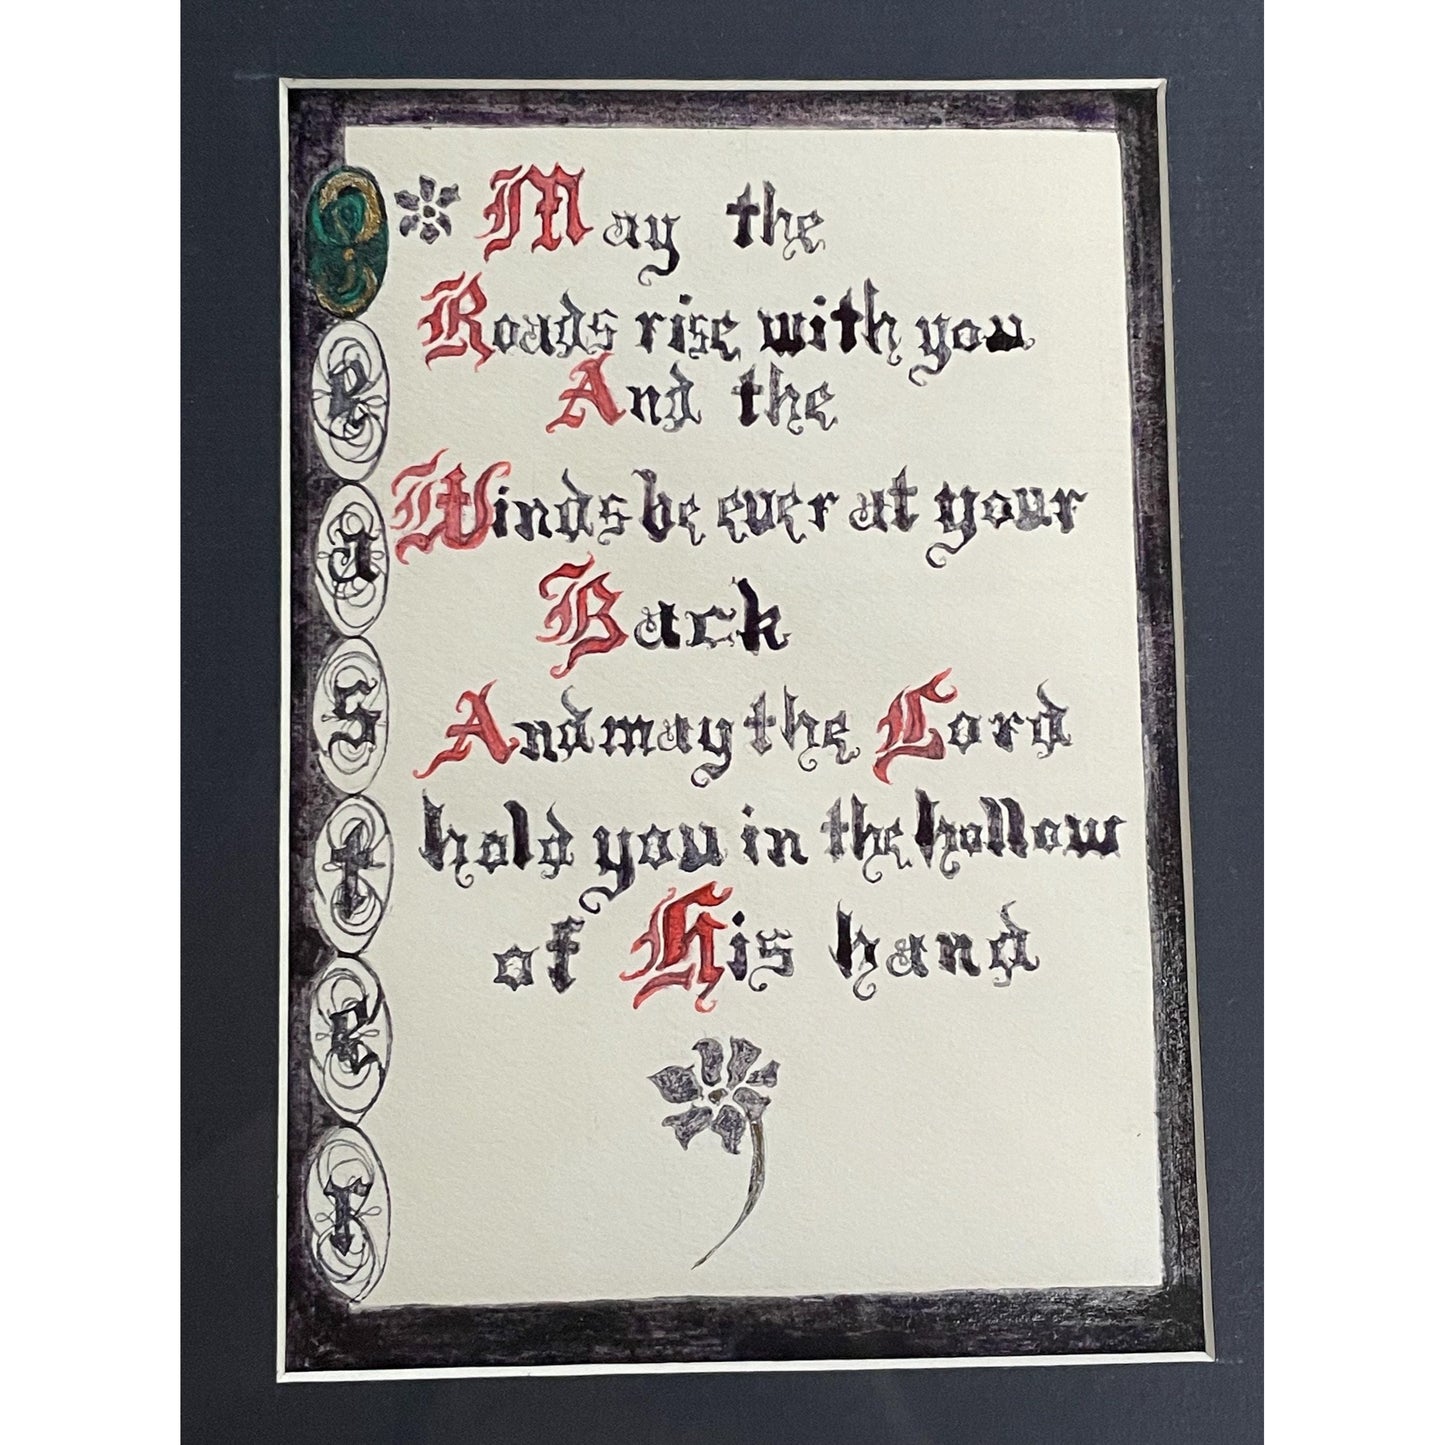 May the
Roads rise with you
And the
Winds be ever at your
Back
And may the Lord
hold you in the hollow
of His hand
s
t
e
r